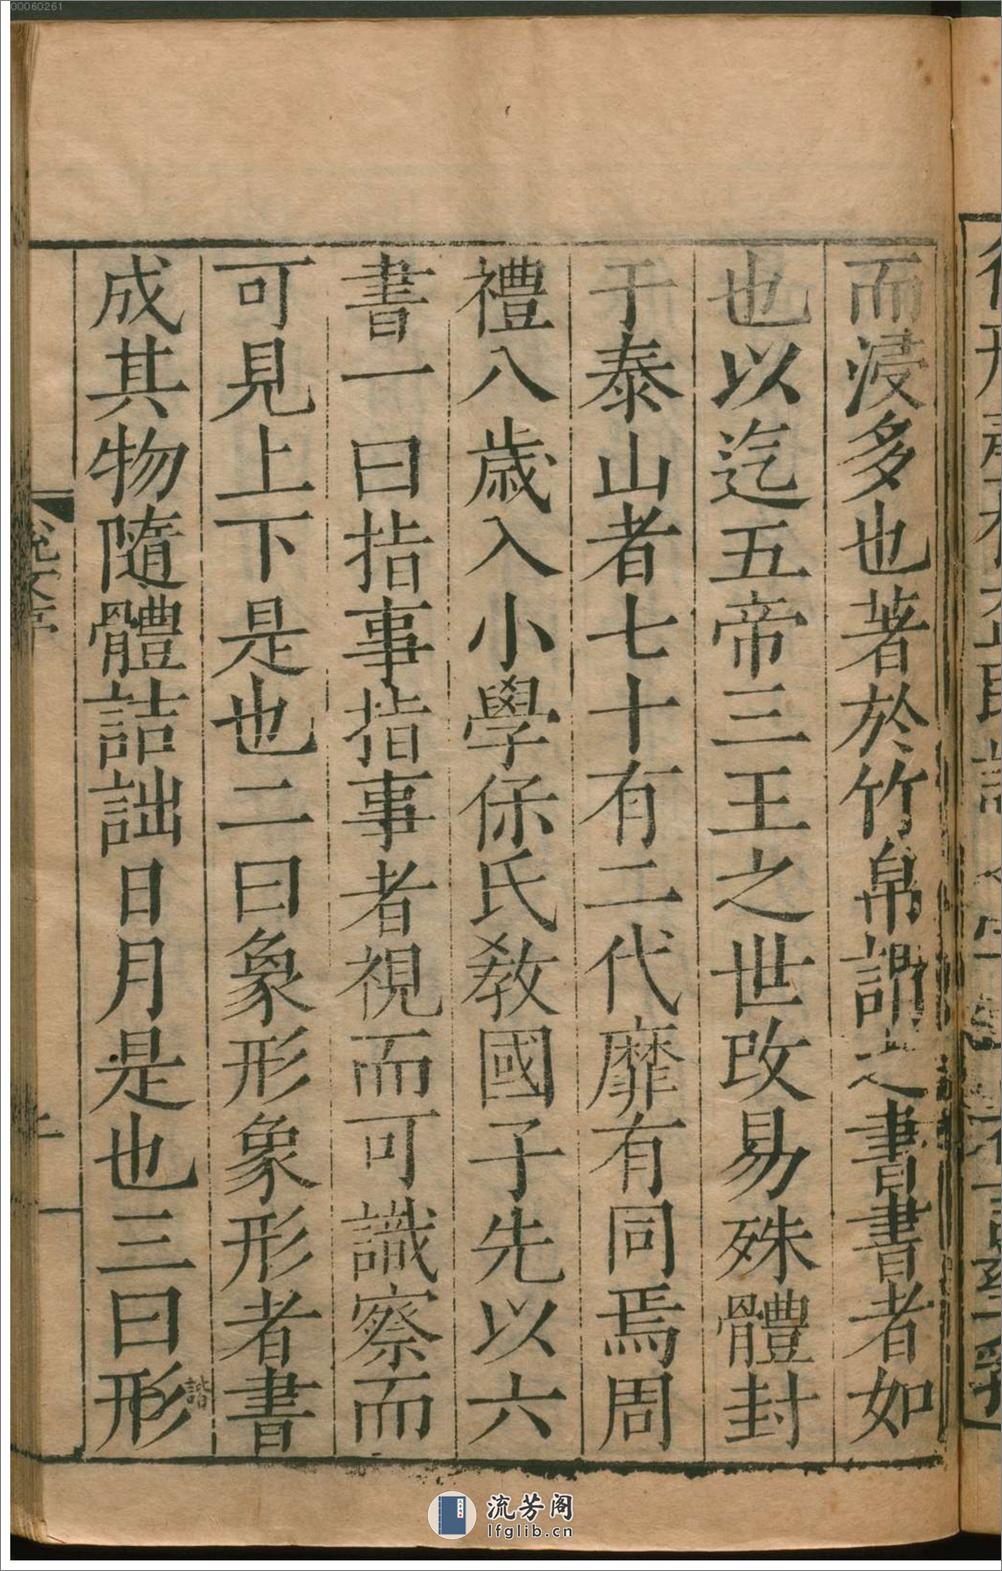 00060261
而浸多也著於竹帛謂之書書者如
也以迄五帝三王之世改易殊體封
于泰山者七十有二代靡有同焉周
禮八歲入小學保氏教國子先以六
書一曰指事指事者視而可識察而
可見上下是也二曰象形象形者書
成其物隨體詰詘日月是也三曰形
諧
説文序
流芳阁
lfglib.cn